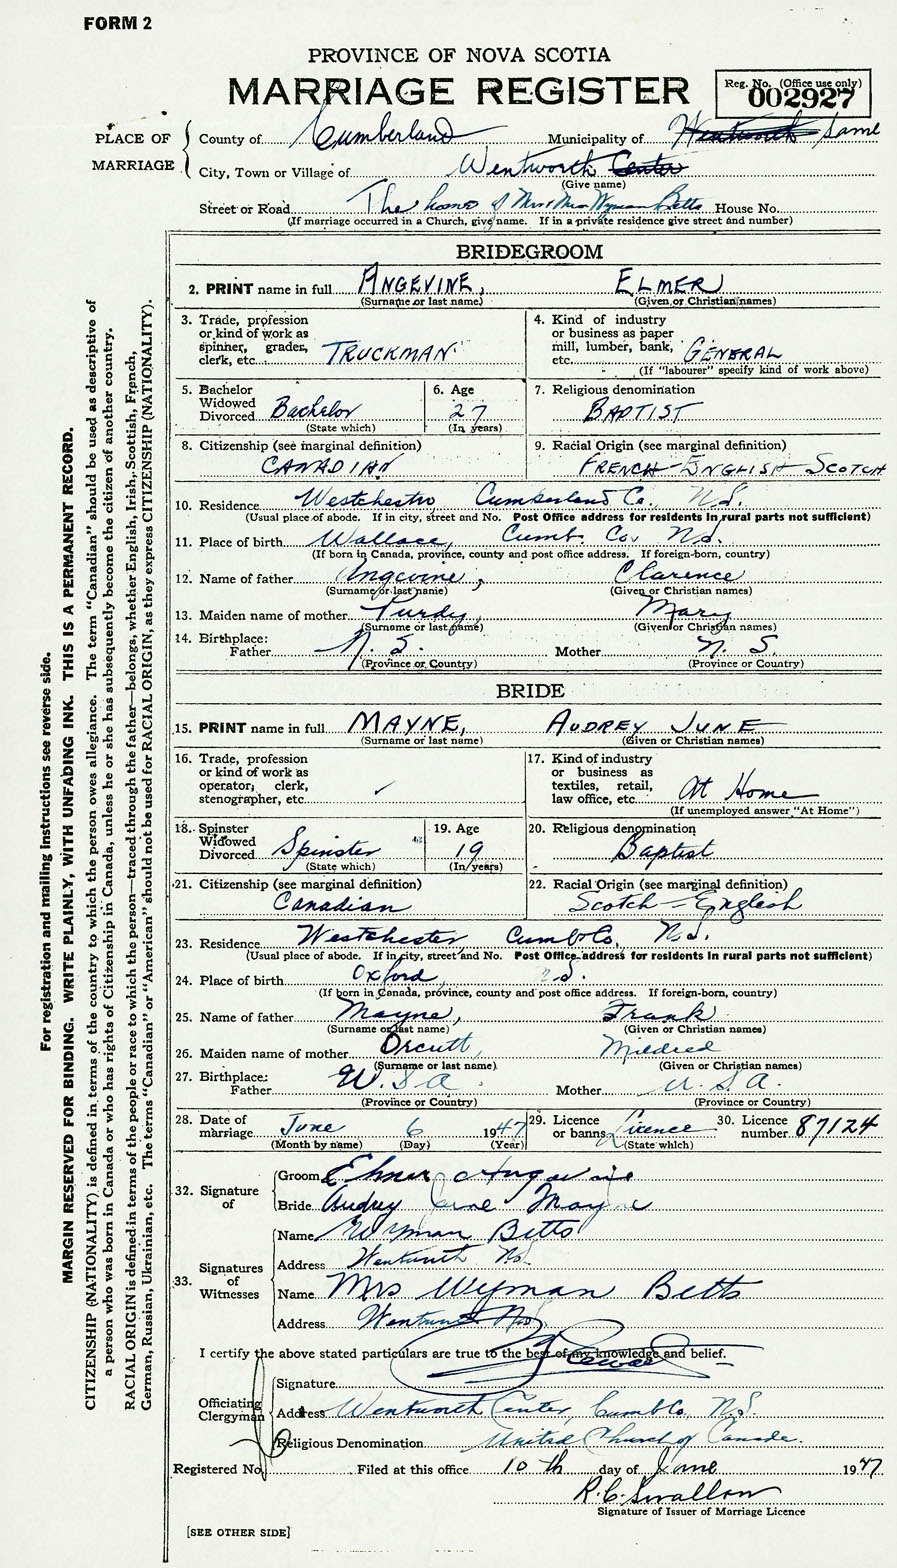 FORM 2
PROVINCE OF NOVA SCOTIA
MARRIAGE REGISTER
Reg. No. (Office use only)
002927
PLACE OF MARRIAGE
County of Cumberland Municipality of Wentworth Same
City, Town or Village of Wentworth Center
(Give name)
Street or Road The home of Mr & Mrs Wyman Betts House No.
(If marriage occurred in a Church, give name. If in a private residence give street and number)
BRIDEGROOM
2. PRINT name in full ANGEVINE, ELMER
(Surname or last name) (Given or Christian names)
3. Trade, profession or kind of work as spinner, grader, clerk, etc. TRUCKMAN
4. Kind of industry or business as paper mill, lumber, bank, etc. GENERAL
(If "labourer" specify kind of work above)
5. Bachelor Widowed Divorced Bachelor
(State which)
6. Age 27
(In years)
7. Religious denomination BAPTIST
8. Citizenship (see marginal definition) CANADIAN
9. Racial Origin (see marginal definition) FRENCH-ENGLISH SCOTCH
10. Residence Westchester Cumberland Co., N.S.
(Usual place of abode. If in city, street and No. Post Office address for residents in rural parts not sufficient)
11. Place of birth Wallace, Cumb. Co. N.S.
(If born in Canada, province, county and post office address. If foreign-born, country)
12. Name of father Angevine, Clarence
(Surname or last name) (Given or Christian names)
13. Maiden name of mother Purdy, Mary
(Surname or last name) (Given or Christian names)
14. Birthplace:
Father N. S. Mother N. S.
(Province or Country) (Province or Country)
BRIDE
15. PRINT name in full MAYNE, AUDREY JUNE
(Surname or last name) (Given or Christian names)
16. Trade, profession or kind of work as operator, clerk, stenographer, etc. ✓
17. Kind of industry or business as textiles, retail, law office, etc. At Home
(If unemployed answer "At Home")
18. Spinster Widowed Divorced Spinster
(State which)
19. Age 19
(In years)
20. Religious denomination Baptist
21. Citizenship (see marginal definition) Canadian
22. Racial Origin (see marginal definition) Scotch-English
23. Residence Westchester, Cumb Co, N.S.
(Usual place of abode. If in city, street and No. Post Office address for residents in rural parts not sufficient)
24. Place of birth Oxford, N.S.
(If born in Canada, province, county and post office address. If foreign-born, country)
25. Name of father Mayne, Frank
(Surname or last name) (Given or Christian names)
26. Maiden name of mother Orcutt, Mildred
(Surname or last name) (Given or Christian names)
27. Birthplace:
Father U.S.A. Mother U.S.A.
(Province or Country) (Province or Country)
28. Date of marriage June 6 1947
(Month by name) (Day) (Year)
29. Licence or banns Licence
(State which)
30. Licence number 87124
32. Signature of
Groom Elmer Angevine
Bride Audrey June Mayne
33. Signatures of Witnesses
Name Wyman Betts
Address Wentworth N.S.
Name Mrs Wyman Betts
Address Wentworth N.S.
I certify the above stated particulars are true to the best of my knowledge and belief.
Officiating Clergyman
Signature
Address Wentworth Center, Cumb Co, N.S.
Religious Denomination United Church of Canada.
Registered No. Filed at this office 10 th day of June 1947
R.C. Swallow
Signature of Issuer of Marriage Licence
[SEE OTHER SIDE]
For registration and mailing instructions see reverse side.
MARGIN RESERVED FOR BINDING. WRITE PLAINLY, WITH UNFADING INK. THIS IS A PERMANENT RECORD.
CITIZENSHIP (NATIONALITY) is defined in terms of the country to which the person owes allegiance. The term "Canadian" should be used as descriptive of
a person who was born in Canada or who has rights of Citizenship in Canada, unless he or she has subsequently become the citizen of another country.
RACIAL ORIGIN is defined in terms of the people or race to which the person—traced through the father—belongs, whether English, Irish, Scottish, French,
German, Russian, Ukrainian, etc. The terms "Canadian" or "American" should not be used for RACIAL ORIGIN, as they express CITIZENSHIP (NATIONALITY).